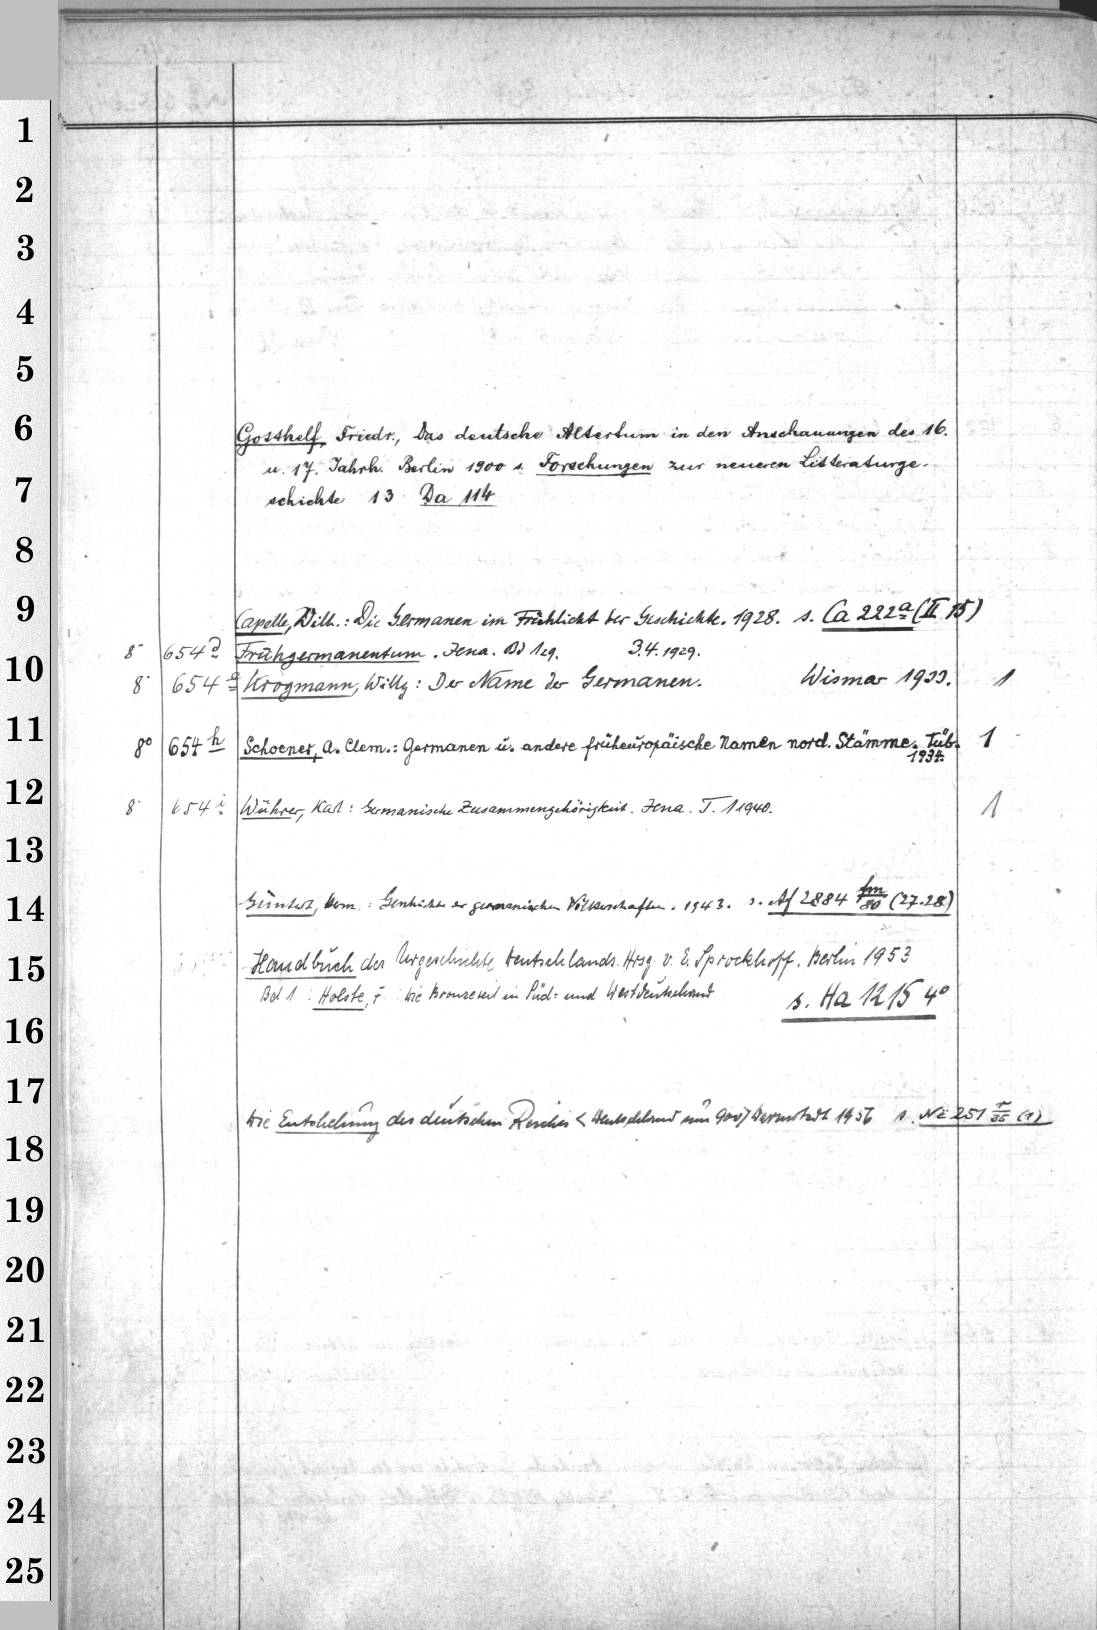 1
2
3
4
5
6
Gotthelf, Friedr., Das deutsche Altertum in den Anschauungen des 16.
u. 17. Jahrh. Berlin 1900 s. Forschungen zur neueren Litteraturge-
7
schichte 13 Da 114
8
9
Capelle, Wilh.: Die Germanen im Frühlicht der Geschichte. 1928. s. Ca 222a (II, 15)
10
8° 654d Frühgermanentum. Jena. Bd 1 29. 3.4.1929.
8° 654g Krogmann, Willy: Der Name der Germanen. Wismar 1933. 1
11
8° 654h Schoener, A. Clem.: Germanen u. andere früheuropäische Namen nord. Stämme. Tüb. 1934. 1
12
8° 654i Wührer, Karl: Germanische Zusammengehörigkeit. Jena. T. 1 1940. 1
13
14
Güntert, Herm.: Geschichte der germanischen Völkerschaften. 1943. s. Af 2884 fm/80 (27.28)
15
Handbuch der Urgeschichte Deutschlands. Hrsg. v. E. Sprockhoff. Berlin 1953
Bd 1: Holste, F.: Die Bronzezeit in Süd- und Westdeutschland s. Ha 1215 4°
16
17
Die Entstehung des deutschen Reiches < Deutschland um 900 > Darmstadt 1956 s. Ne 251 (1)
18
19
20
21
22
23
24
25